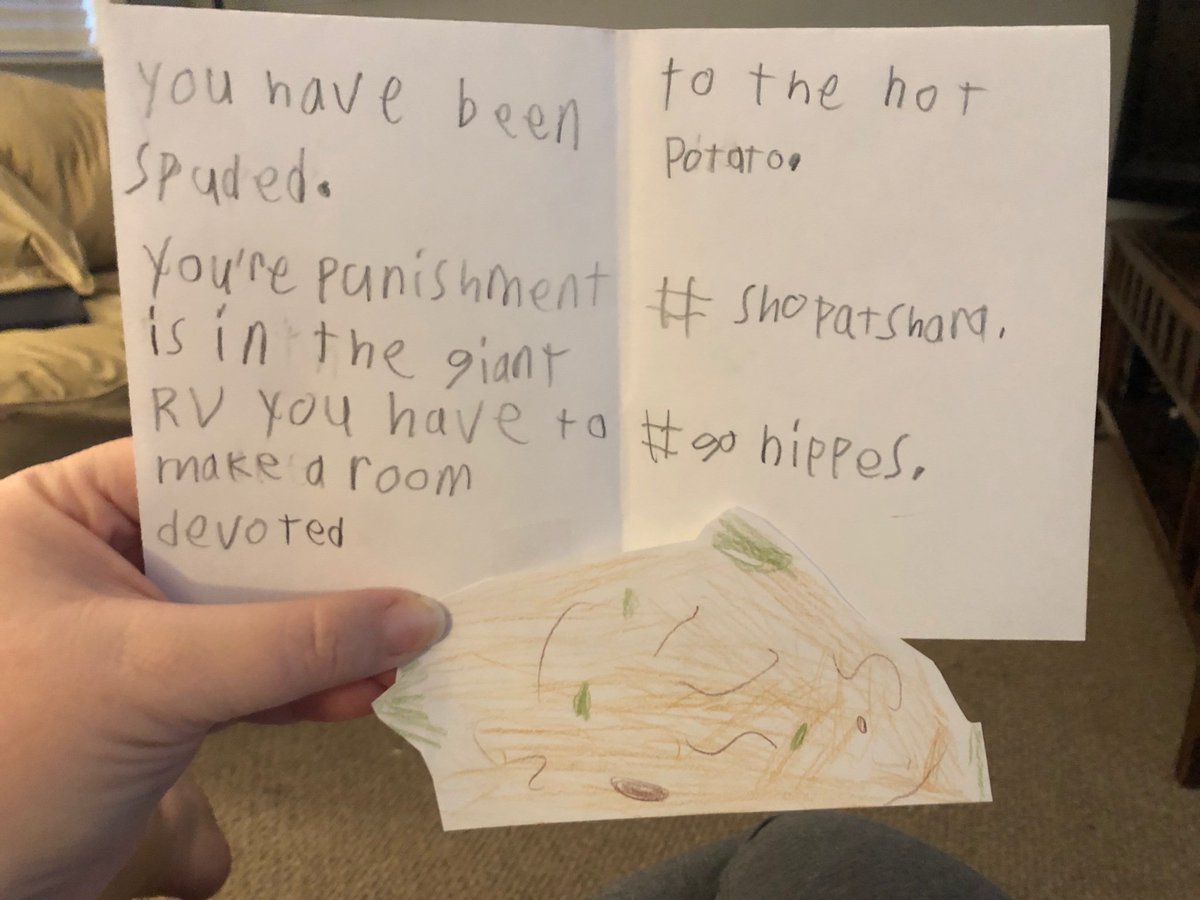 you have been
spuded.
you're punishment
is in the giant
RV you have to
make a room
devoted
to the hot
potato.
# shopatshara.
#go hippes.